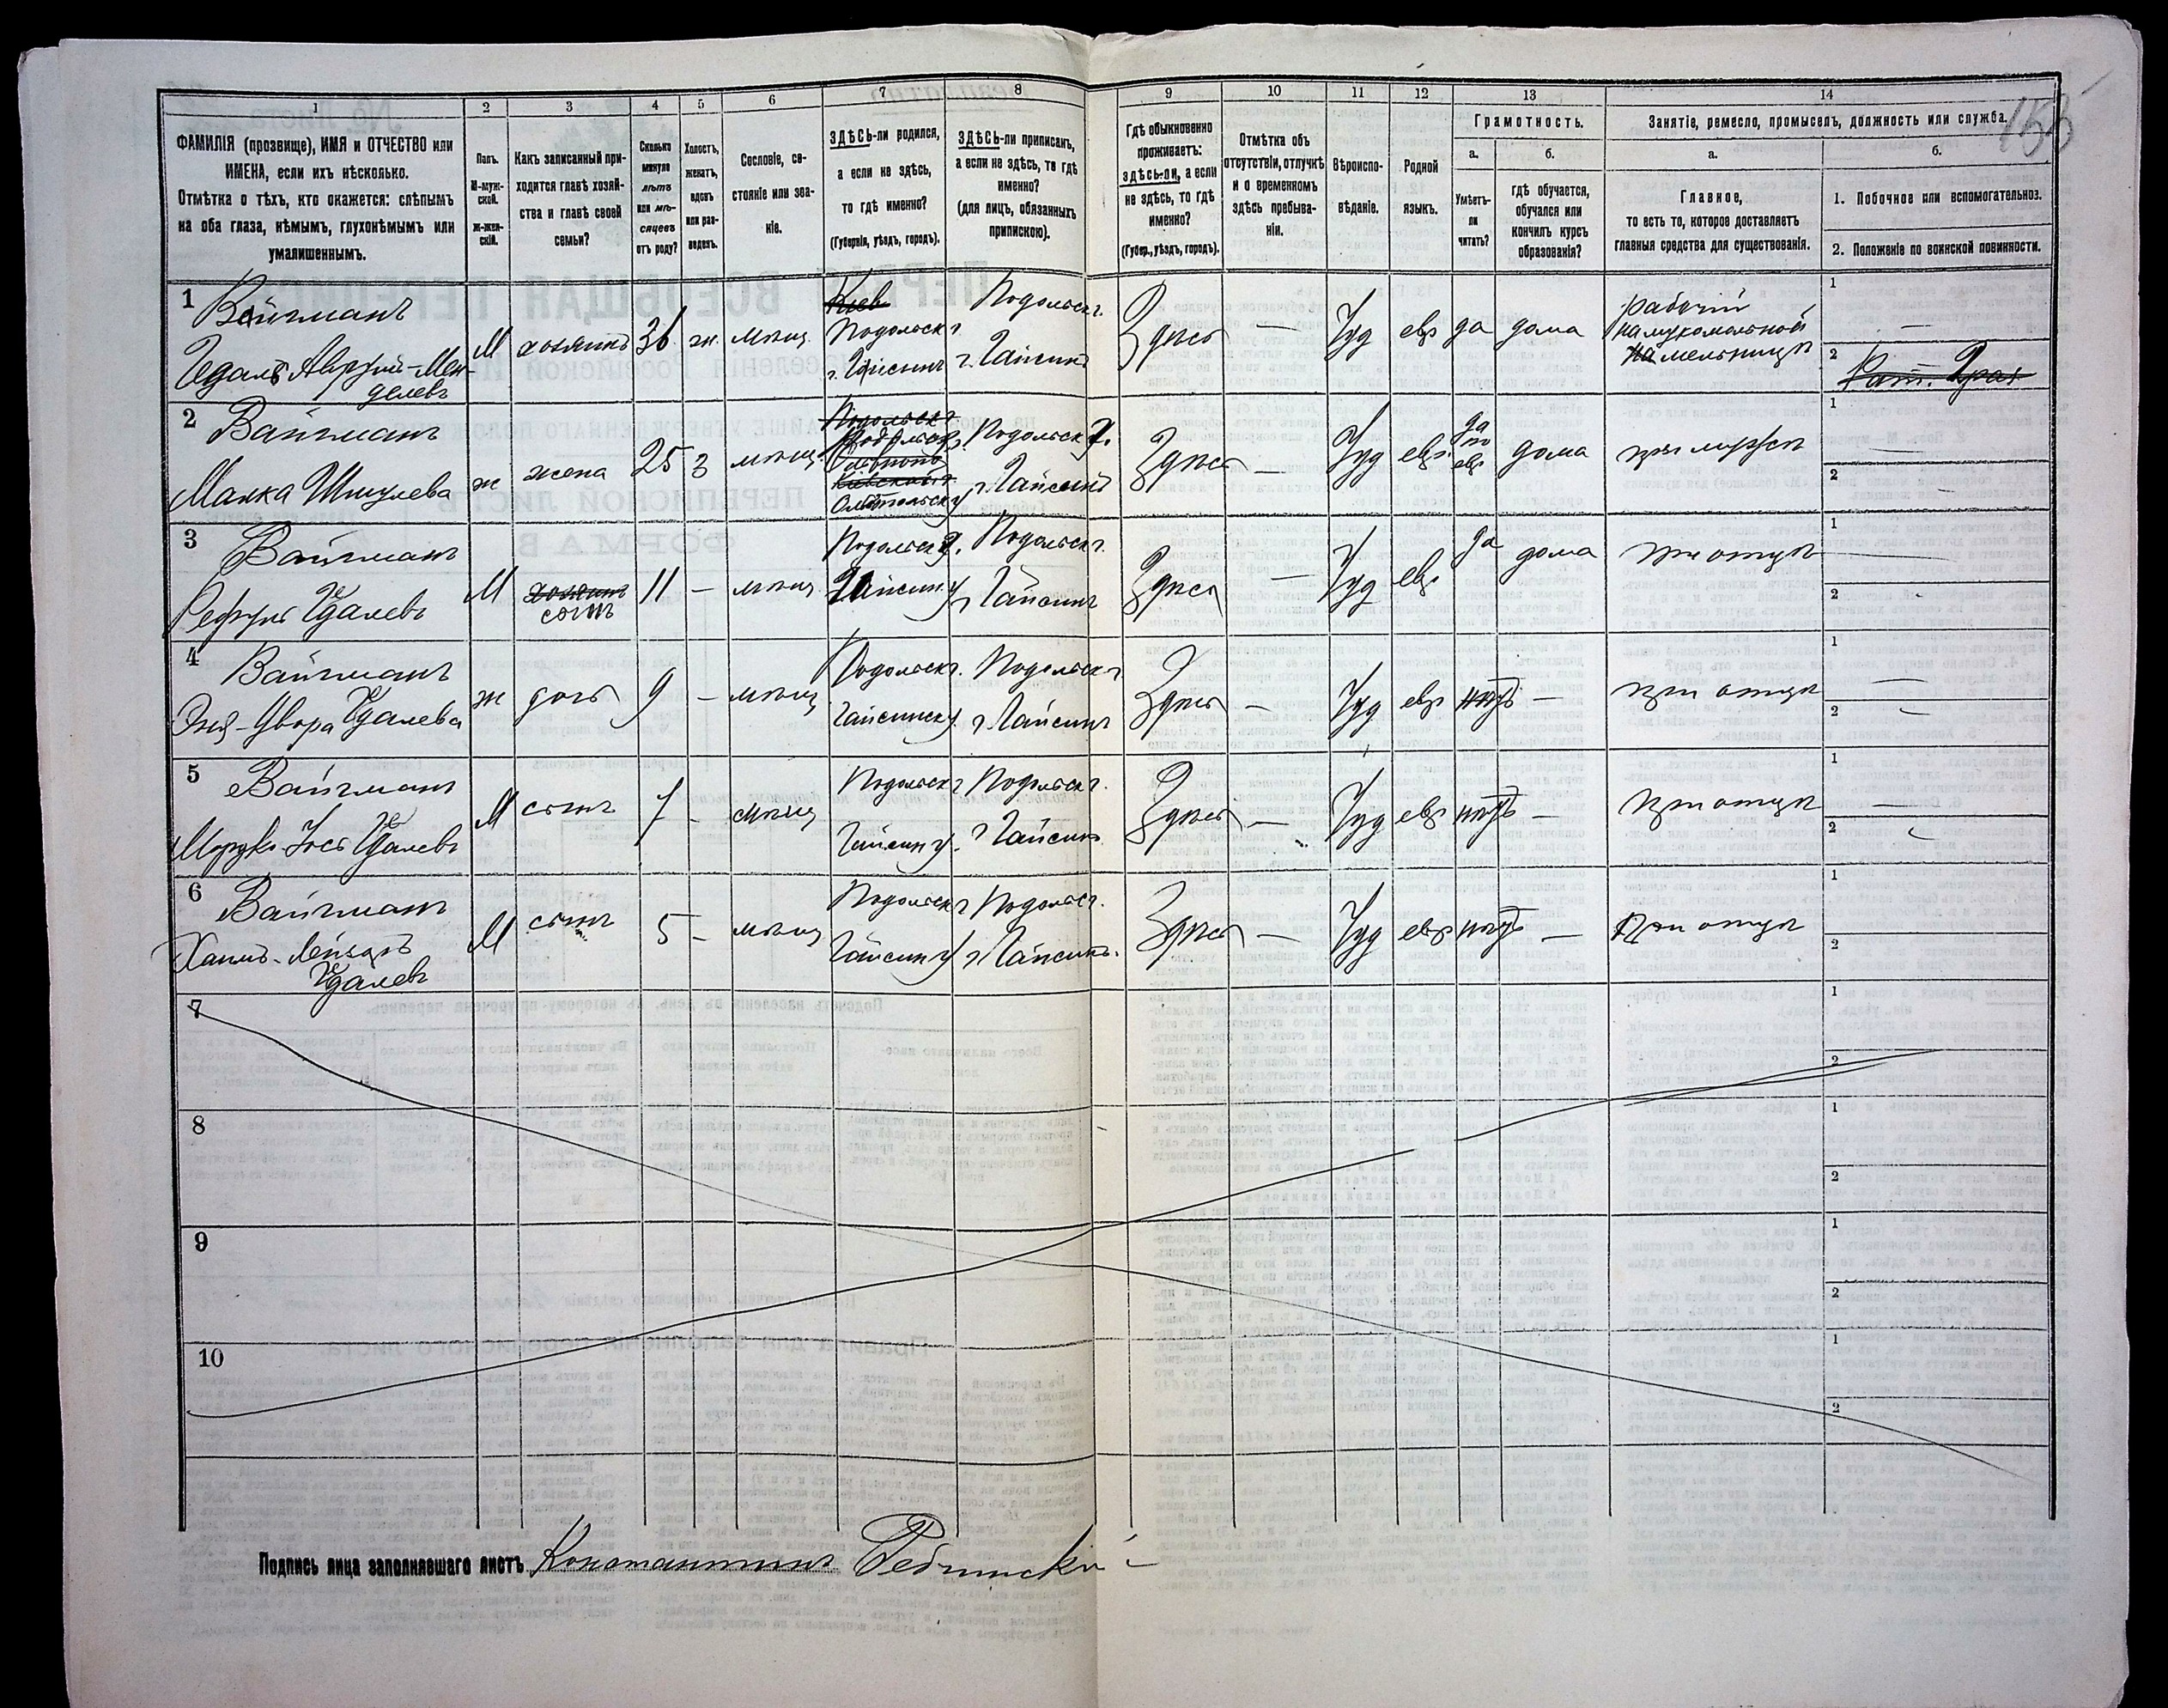 155
1 2 3 4 5 6 7 8 9 10 11 12 13 14
ФАМИЛІЯ (прозвище), ИМЯ и ОТЧЕСТВО или
ИМЕНА, если ихъ нѣсколько.
Отмѣтка о тѣхъ, кто окажется: слѣпымъ
на оба глаза, нѣмымъ, глухонѣмымъ или
умалишеннымъ.
Полъ.
М-муж-
ской.
Ж-жен-
скій.
Какъ записанный при-
ходится главѣ хозяй-
ства и главѣ своей
семьи?
Сколько
минуло
лѣтъ
или мѣ-
сяцевъ
отъ роду?
Холостъ,
женатъ,
вдовъ
или раз-
веденъ.
Сословіе, со-
стояніе или зва-
ніе.
ЗДѢСЬ-ли родился,
а если не здѣсь,
то гдѣ именно?
(Губернія, уѣздъ, городъ).
ЗДѢСЬ-ли приписанъ,
а если не здѣсь, то гдѣ
именно?
(для лицъ, обязанныхъ
припискою).
Гдѣ обыкновенно
проживаетъ:
здѣсь-ли, а если
не здѣсь, то гдѣ
именно?
(Губер., уѣздъ, городъ).
Отмѣтка объ
отсутствіи, отлучкѣ
и о временномъ
здѣсь пребыва-
ніи.
Вѣроиспо-
вѣданіе.
Родной
языкъ.
Грамотность.
а.
Умѣетъ-
ли
читать?
б.
гдѣ обучается,
обучался или
кончилъ курсъ
образованія?
Занятіе, ремесло, промыселъ, должность или служба.
а.
Главное,
то есть то, которое доставляетъ
главныя средства для существованія.
б.
1. Побочное или вспомогательное.
2. Положеніе по воинской повинности.
1 Вайгманъ
Гедаль Авруй-Мен-
делевъ
М хозяинъ 36 ж. мѣщ.
Кіев
Подольск г.
г. Гайсинъ
Подольск г.
г. Гайсинъ
Здѣсь — Іуд евр да дома
рабочий
на мукомольной
на мельницѣ
1 —
2
2 Вайгманъ
Малка Шмулева
ж жена 25 З мѣщ.
Подольск г.
Подольск г.
г. Гайсинъ
Здѣсь — Іуд евр.
да
по
евр
дома при мужѣ
1 —
2 —
3 Вайгманъ
Гедалевъ
М хозяинъ
сынъ
11 — мѣщ
Подольск г.
Гайсин у
Подольск г.
г. Гайсинъ
Здѣсь — Іуд евр да дома при отцѣ
1 —
2 —
4 Вайгманъ
Гедалева
ж дочь 9 — мѣщ
Подольск г.
Гайсинск у.
Подольск г.
г. Гайсинъ
Здѣсь — Іуд евр нѣтъ — при отцѣ
1 —
2 —
5 Вайгманъ
Гедалевъ
М сынъ 7 — мѣщ
Подольск г
Гайсин у.
Подольск г.
г. Гайсинъ
Здѣсь — Іуд евр нѣтъ — при отцѣ
1 —
2 —
6 Вайгманъ
Хаимъ-Лейзоръ
Гедалевъ
М сынъ 5 — мѣщ
Подольск г
Гайсин у
Подольск г.
г. Гайсинъ.
Здѣсь — Іуд евр нѣтъ — при отцѣ
1
2
7
1
2
8
1
2
9
1
2
10
1
2
Подпись лица заполнявшаго листъ Константинъ